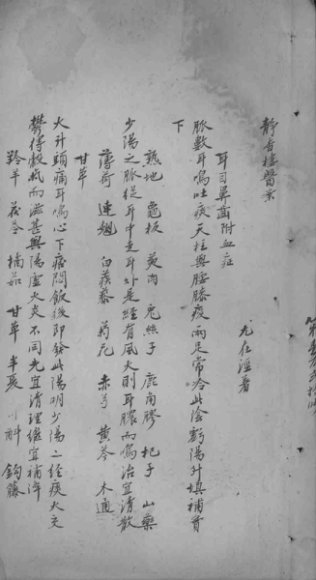 靜香樓醫案
尤在涇著
耳司鼻齒附血症
脈數耳鳴吐痰天柱與腰膝痠兩足常冷此陰虧陽升填補腎
下
熟地 龜板 萸肉 兔絲子 鹿角膠 杞子 山藥
少陽之脈從耳中走耳外是經有風火則耳膿而鳴治宜清散
薄荷 連翹 白蒺藜 菊花 赤芍 黃芩 木通
甘草
火升頭痛耳鳴心下痞悶飯後即發此陽明少陽二經痰火交
鬱得穀氣而滋甚與陽虛火炎不同先宜清理繼宜補降
羚羊 茯苓 橘紅 甘草 半夏 川斛 鉤藤